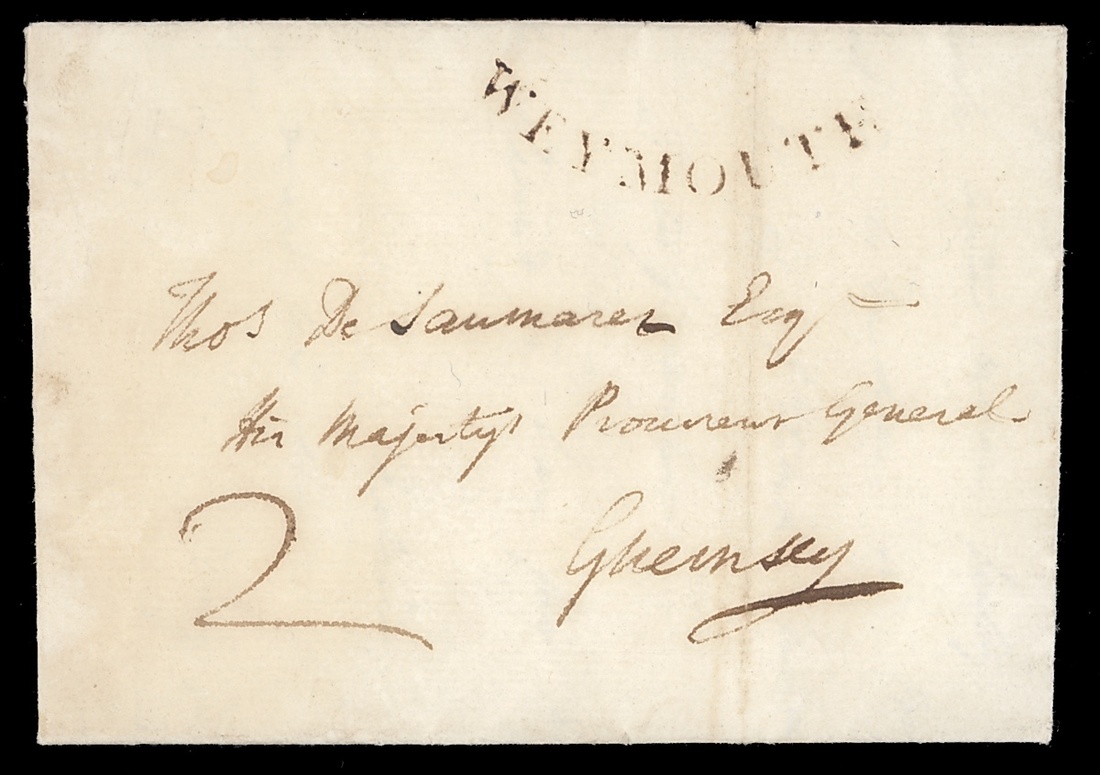 WEYMOUTH
Thos De Sausmarez Esqr
His Majestys Procureur General
2 Guernsey